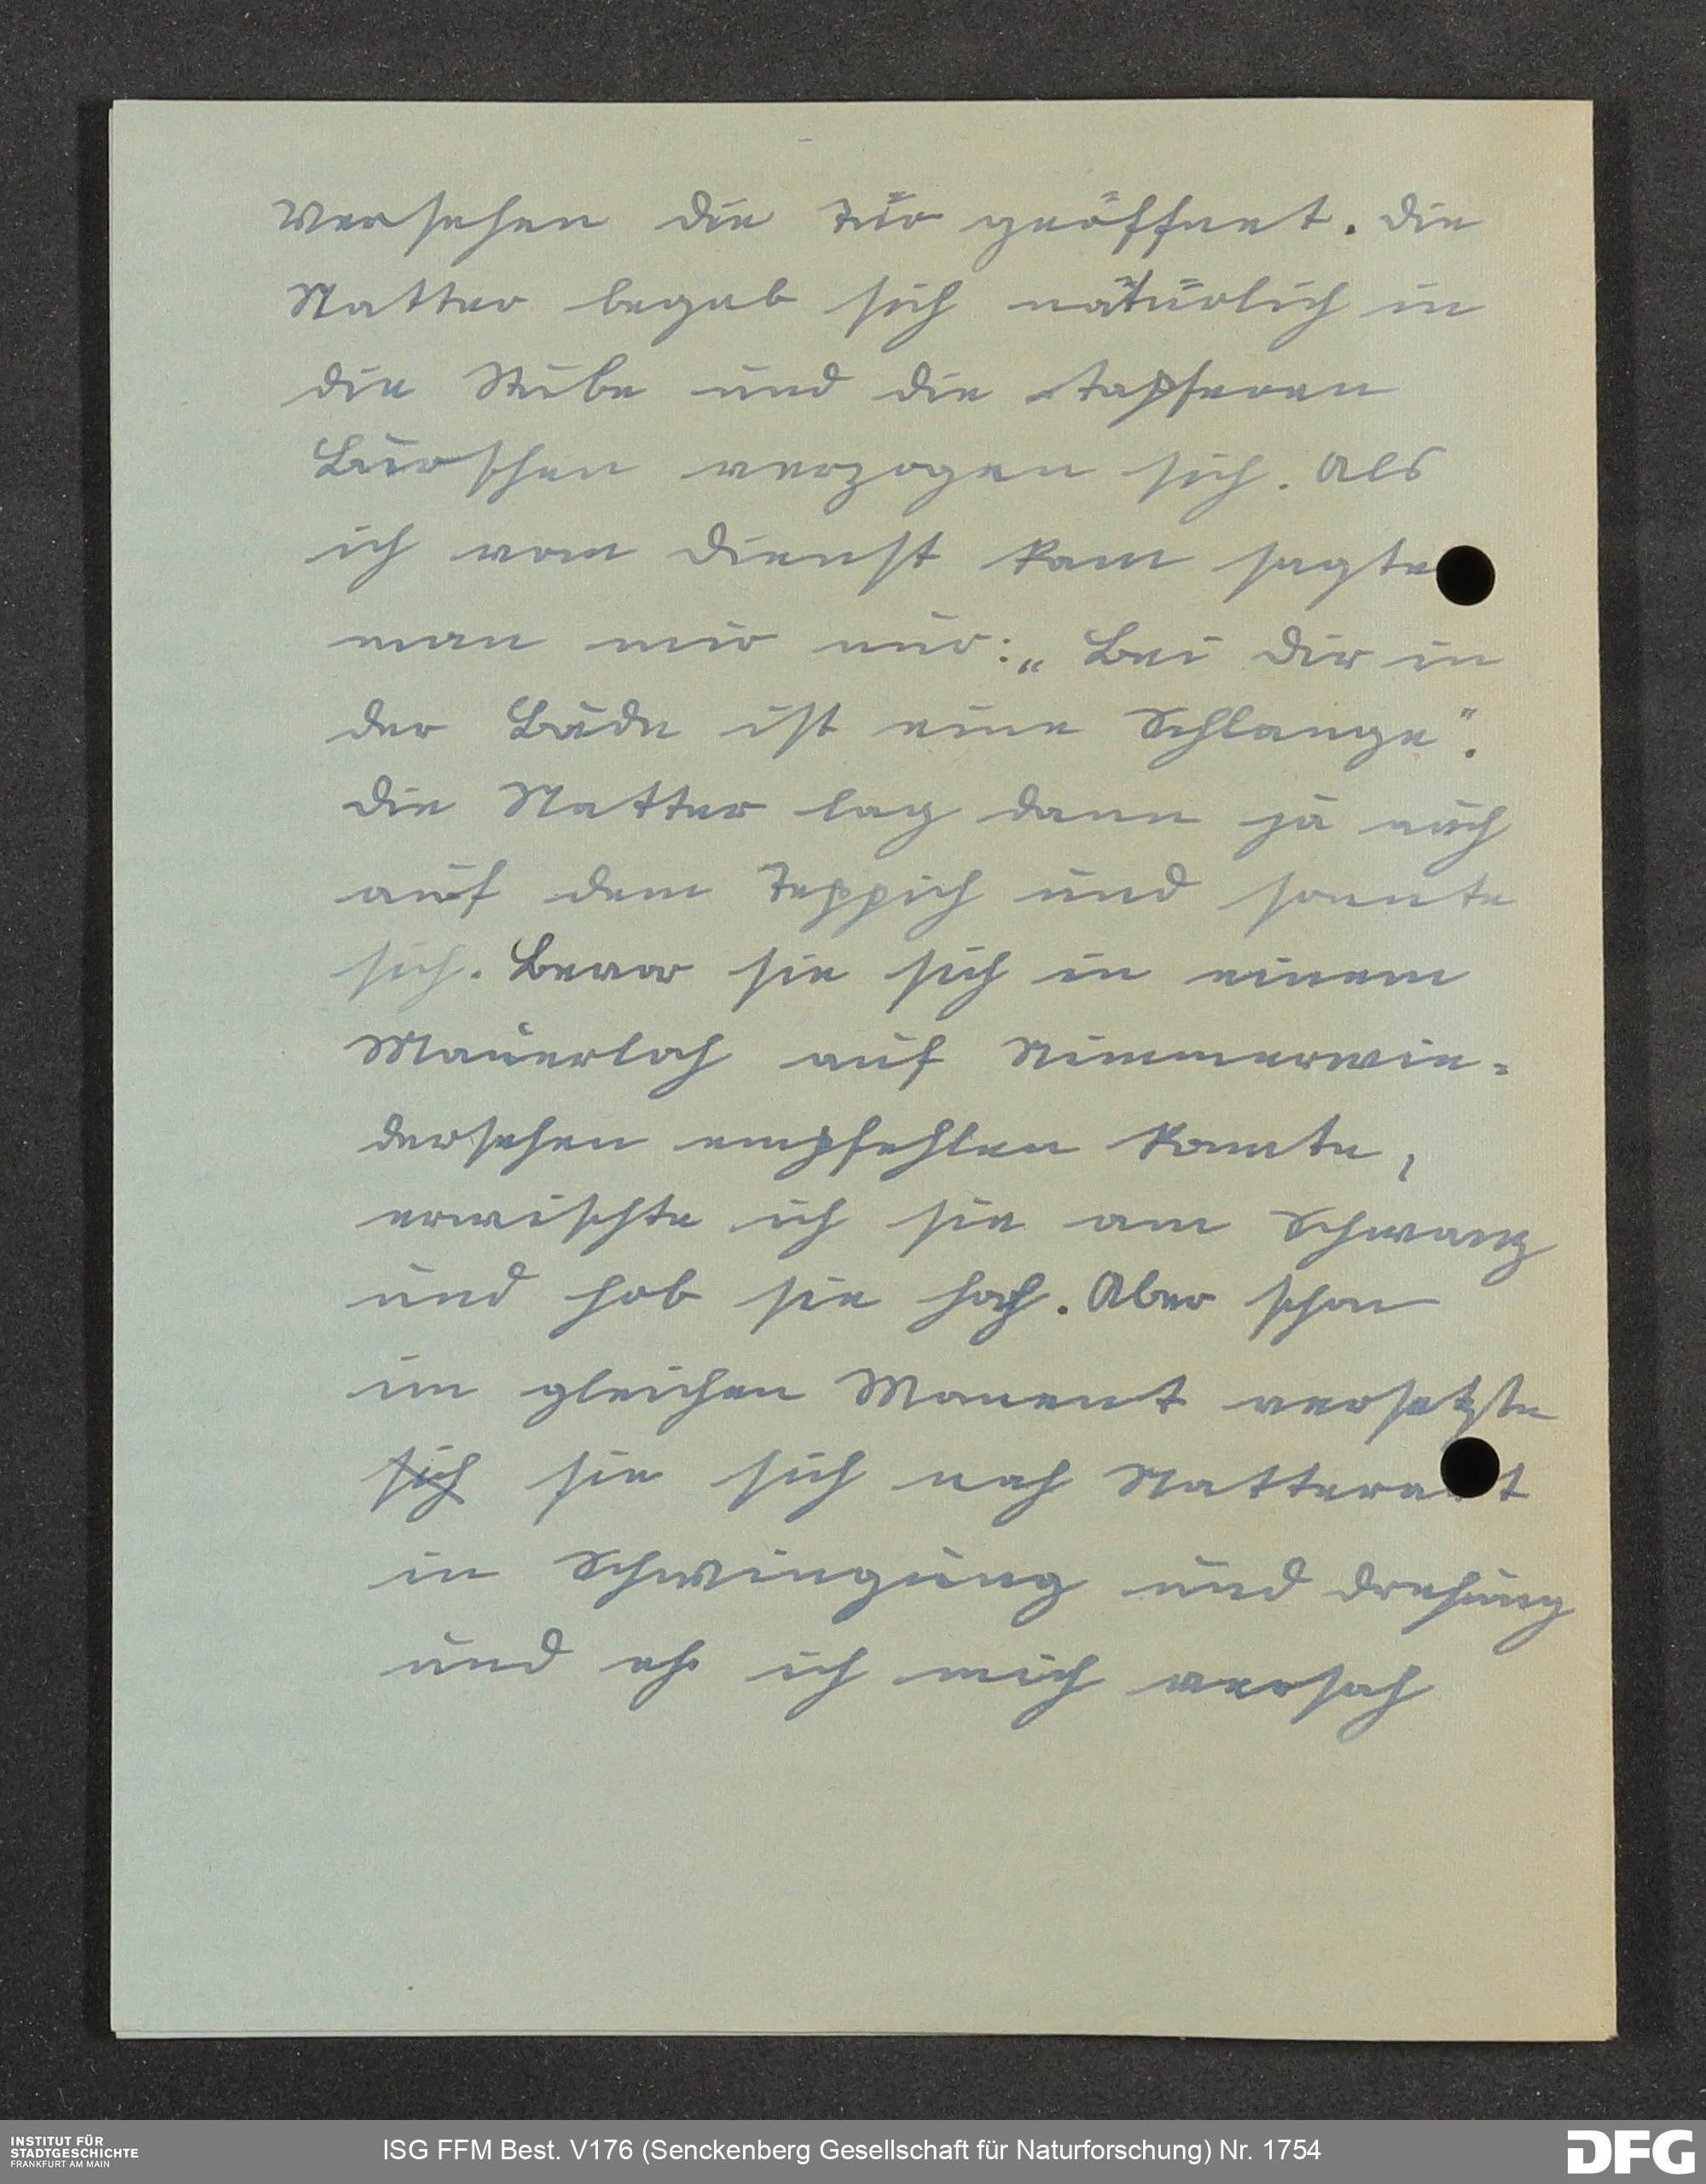 Versehen die Tür geöffnet. Die
Natter begab sich natürlich in
die Stube und die tapferen
Burschen verzogen sich. Als
ich vom Dienst kam sagte
man mir nur: „Bei Dir in
der Bude ist eine Schlange“.
Die Natter lag dann ja auch
auf dem Teppich und sonnte
sich. Bevor sie sich in einem
Mauerloch auf Nimmerwie-
dersehen empfehlen konnte,
erwischte ich sie am Schwanz
und hob sie hoch. Aber schon
im gleichen Moment versetzte
sich sie sich nach Natterart
in Schwingung und Drehung
und eh ich mich versah
INSTITUT FÜR
STADTGESCHICHTE
FRANKFURT AM MAIN
ISG FFM Best. V176 (Senckenberg Gesellschaft für Naturforschung) Nr. 1754
DFG